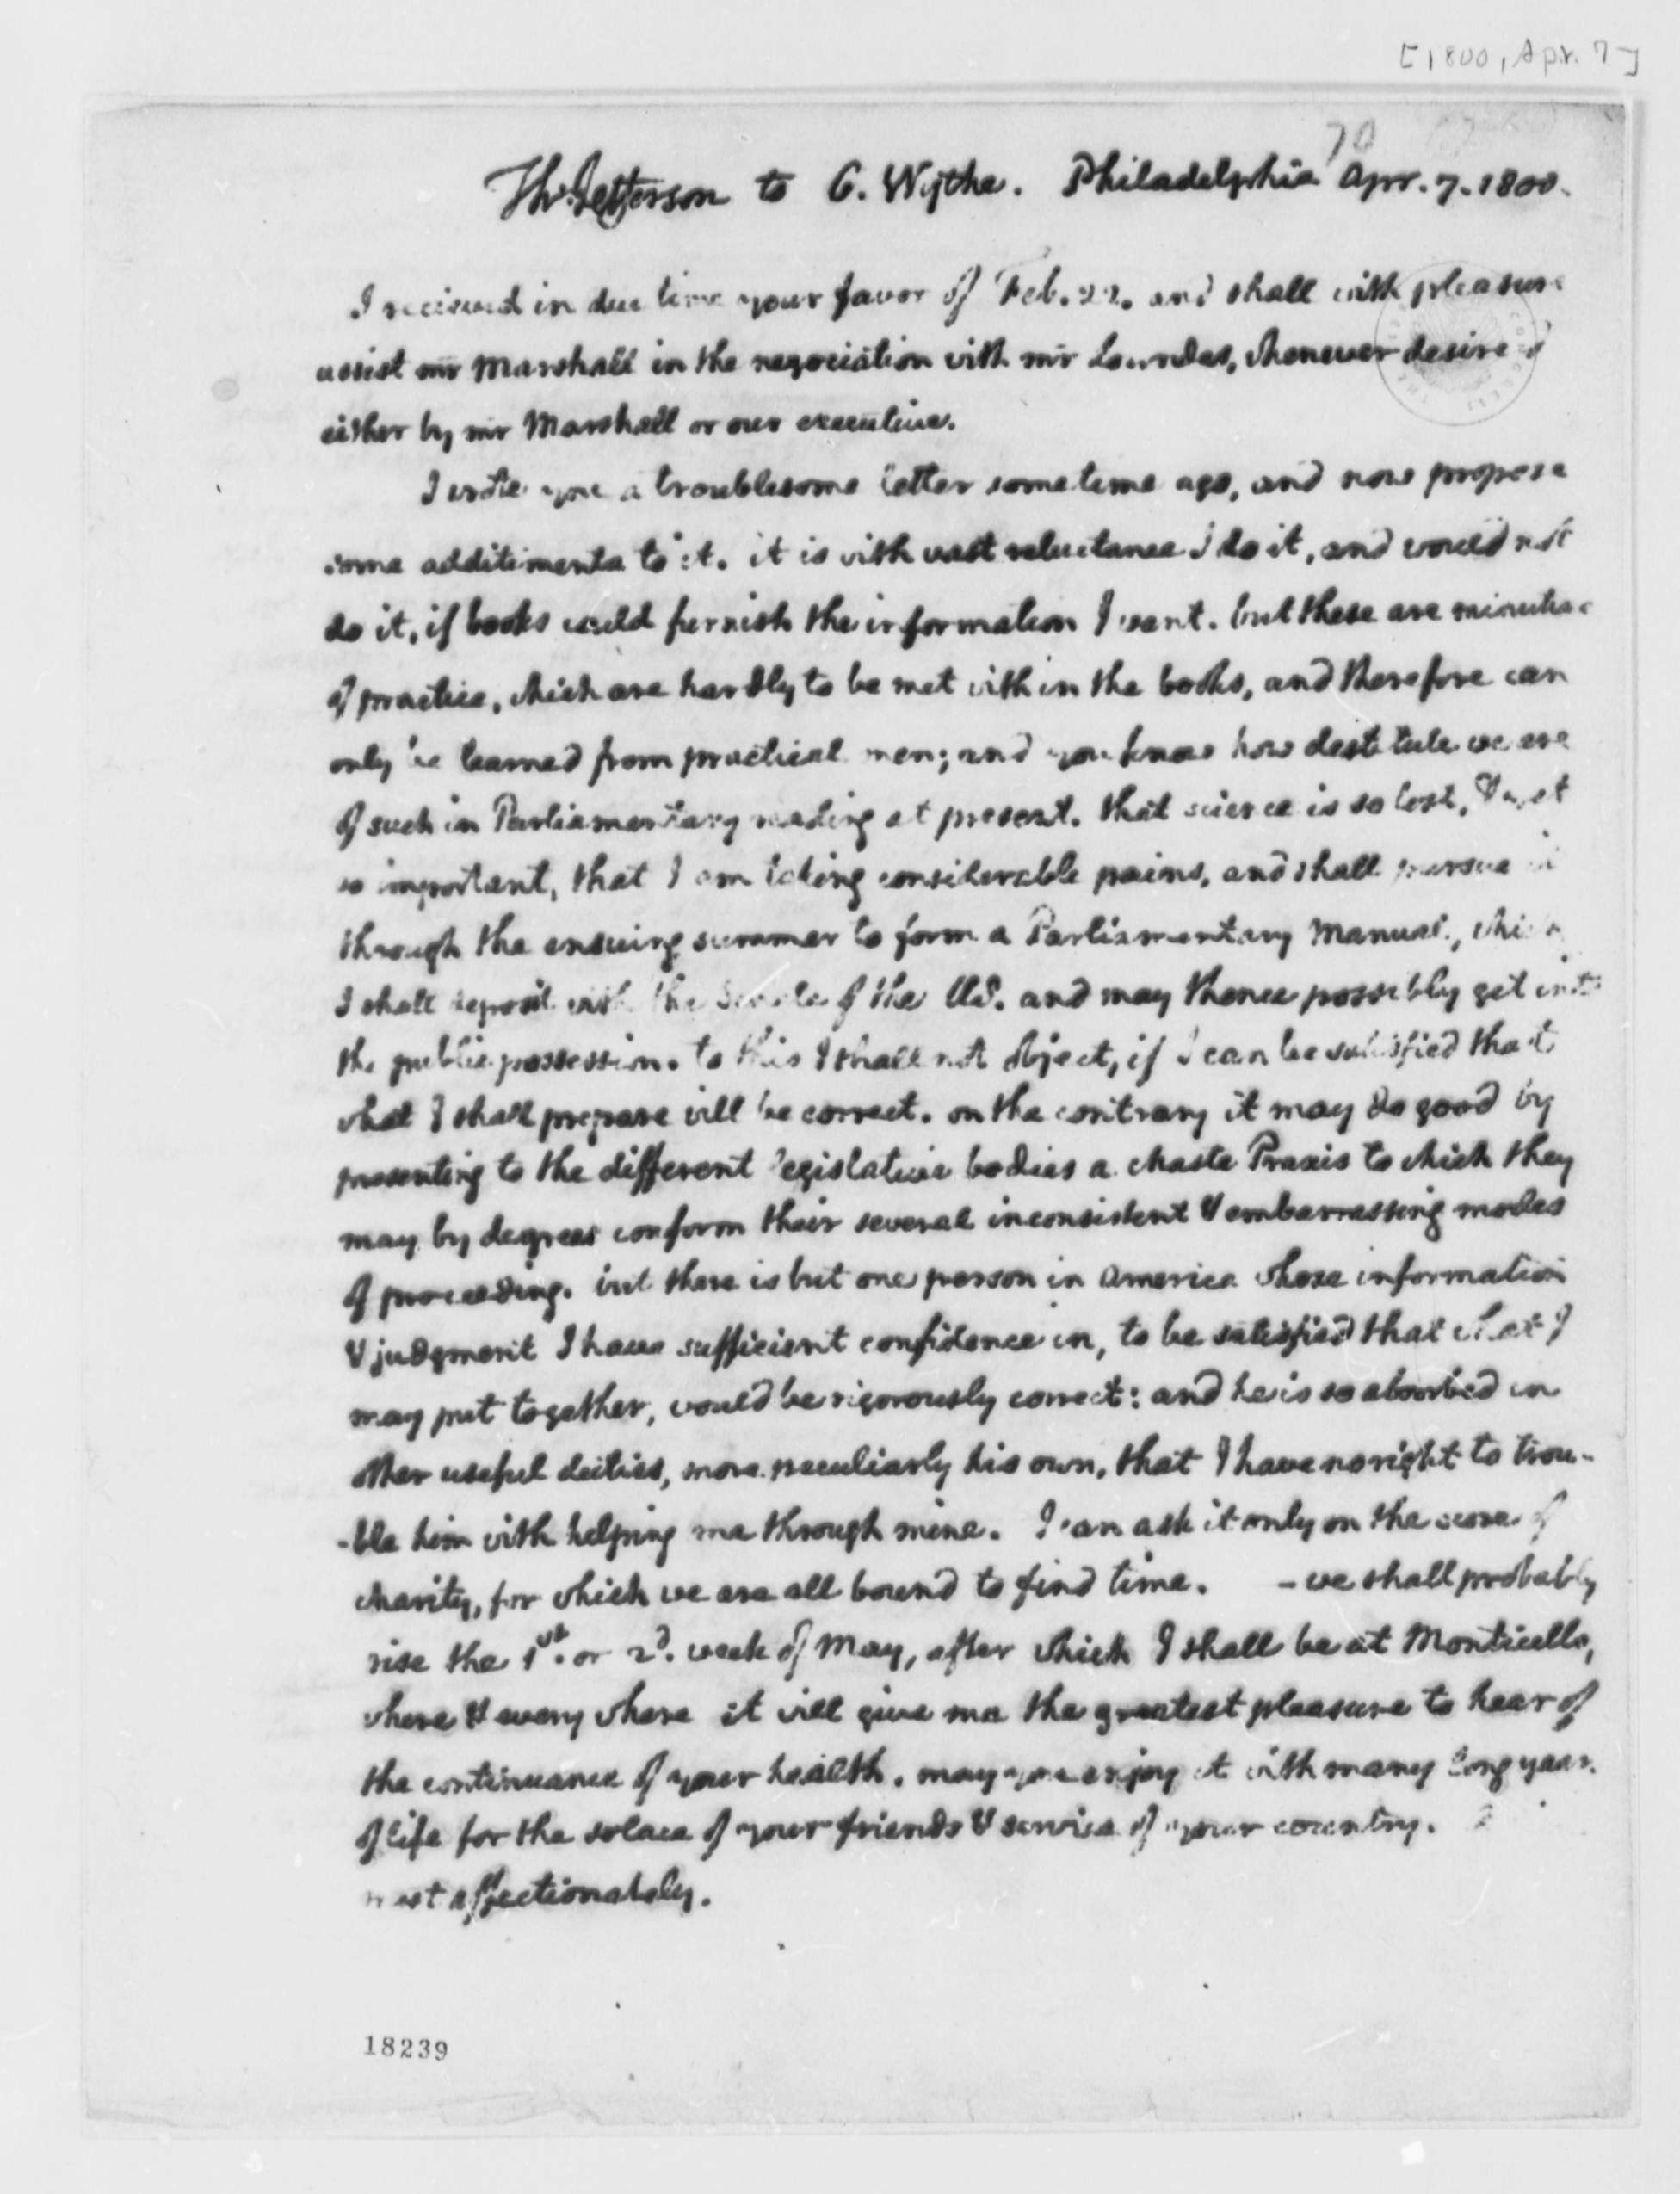 [1800, Apr. 7]
70
Th: Jefferson to G. Wythe. Philadelphia Apr. 7. 1800.
I recieved in due time your favor of Feb. 22. and shall with pleasure
assist mr Marshall in the negociation with mr Lowndes, whenever desired
either by mr Marshall or our executive.
I wrote you a troublesome letter some time ago, and now propose
some additimenta to it. it is with vast reluctance I do it, and would not
do it, if books could furnish the information I want. but these are minutiae
of practice, which are hardly to be met with in the books, and therefore can
only be learned from practical men; and you know how destitute we are
of such in Parliamentary reading at present. that science is so lost, & yet
so important, that I am taking considerable pains, and shall pursue it
through the ensuing summer to form a Parliamentary Manual, which
I shall deposit with the Senate of the US. and may thence possibly get into
the public possession. to this I shall not object, if I can be satisfied that
what I shall prepare will be correct. on the contrary it may do good by
presenting to the different legislative bodies a chaste Praxis to which they
may by degrees conform their several inconsistent & embarrassing modes
of proceeding. but there is but one person in America whose information
& judgment I have sufficient confidence in, to be satisfied that what I
may put together, would be rigorously correct: and he is so absorbed in
other useful duties, more peculiarly his own, that I have no right to trou-
-ble him with helping me through mine. I can ask it only on the score of
charity, for which we are all bound to find time. - we shall probably
rise the 1st. or 2d. week of May, after which I shall be at Monticello,
where & every where it will give me the greatest pleasure to hear of
the continuance of your health. may you enjoy it with many long years
of life for the solace of your friends & service of your country.
most affectionately.
18239